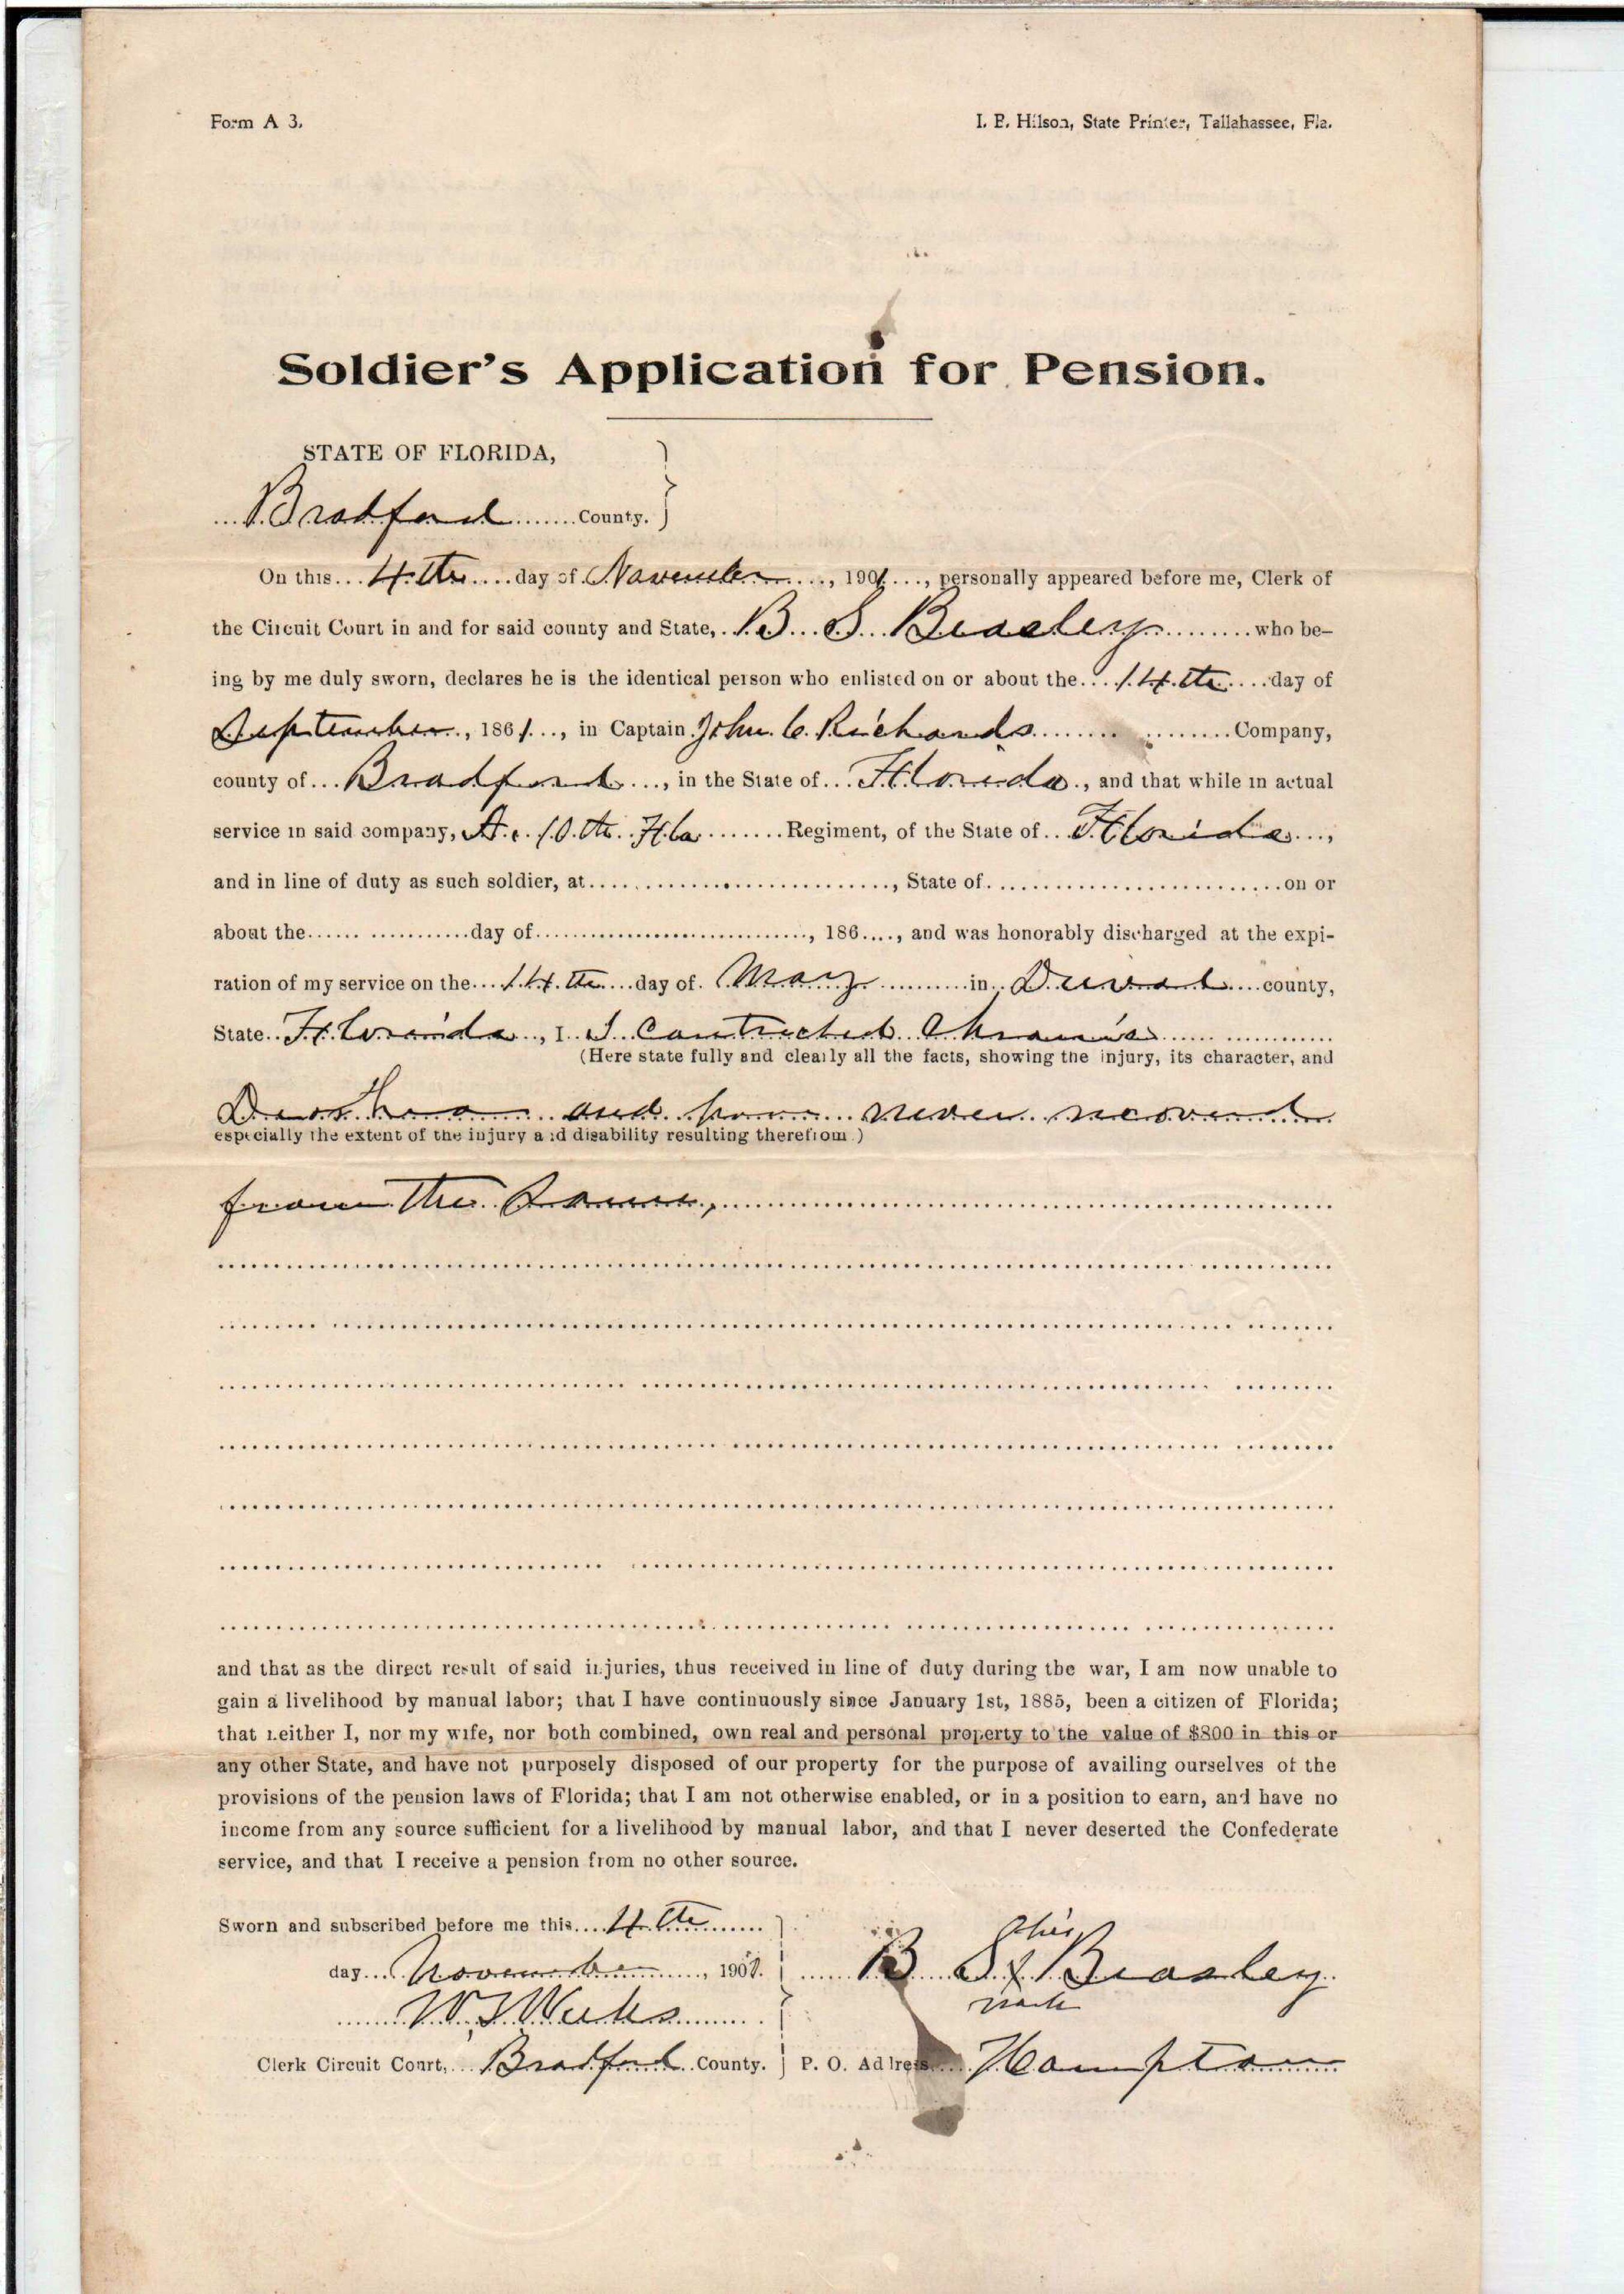 Form A 3.
I. B. Hilson, State Printer, Tallahassee, Fla.
Soldier's Application for Pension.
STATE OF FLORIDA,
Bradford County.
On this 4th day of November, 1901, personally appeared before me, Clerk of
the Circuit Court in and for said county and State, B S Beasley who be-
ing by me duly sworn, declares he is the identical person who enlisted on or about the 14th day of
September, 1861, in Captain John C. Richards Company,
county of Bradford, in the State of Florida, and that while in actual
service in said company, A. 10th Fla Regiment, of the State of Florida,
and in line of duty as such soldier, at , State of on or
about the day of , 186 , and was honorably discharged at the expi-
ration of my service on the 14th day of May in Duval county,
State Florida, I I Contracted Chronic
(Here state fully and clearly all the facts, showing the injury, its character, and
and have never recoverd
especially the extent of the injury and disability resulting therefrom.)
from the Same,
and that as the direct result of said injuries, thus received in line of duty during the war, I am now unable to
gain a livelihood by manual labor; that I have continuously since January 1st, 1885, been a citizen of Florida;
that neither I, nor my wife, nor both combined, own real and personal property to the value of $800 in this or
any other State, and have not purposely disposed of our property for the purpose of availing ourselves of the
provisions of the pension laws of Florida; that I am not otherwise enabled, or in a position to earn, and have no
income from any source sufficient for a livelihood by manual labor, and that I never deserted the Confederate
service, and that I receive a pension from no other source.
Sworn and subscribed before me this 4th
day November, 1901.
his
B S x Beasley
mark
Clerk Circuit Court, Bradford County.
P. O. Address Hampton